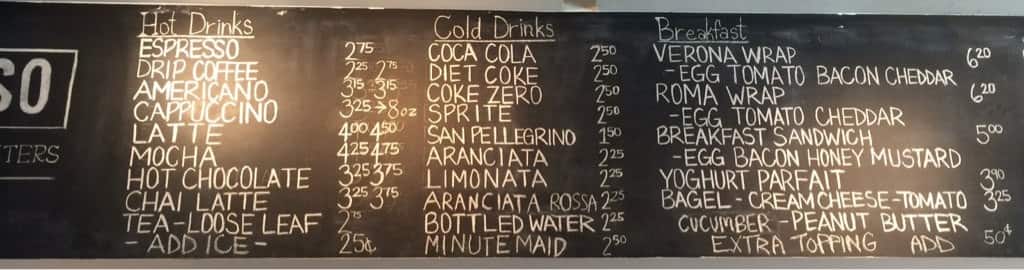 SO
TERS
Hot Drinks
ESPRESSO 2.75
DRIP COFFEE 2.25 2.75
AMERICANO 3.15 3.15
CAPPUCCINO 3.25 → 8oz
LATTE 4.00 4.50
MOCHA 4.25 4.75
HOT CHOCOLATE 3.25 3.75
CHAI LATTE 3.25 3.75
TEA-LOOSE LEAF 2.75
- ADD ICE - 25¢
Cold Drinks
COCA COLA 2.50
DIET COKE 2.50
COKE ZERO 2.50
SPRITE 2.50
SAN PELLEGRINO 1.50
ARANCIATA 2.25
LIMONATA 2.25
ARANCIATA ROSSA 2.25
BOTTLED WATER 2.25
MINUTE MAID 2.50
Breakfast
VERONA WRAP 6.20
-EGG TOMATO BACON CHEDDAR
ROMA WRAP 6.20
-EGG TOMATO CHEDDAR
BREAKFAST SANDWICH 5.00
-EGG BACON HONEY MUSTARD
YOGHURT PARFAIT 3.90
BAGEL-CREAM CHEESE-TOMATO 3.25
CUCUMBER-PEANUT BUTTER
EXTRA TOPPING ADD 50¢